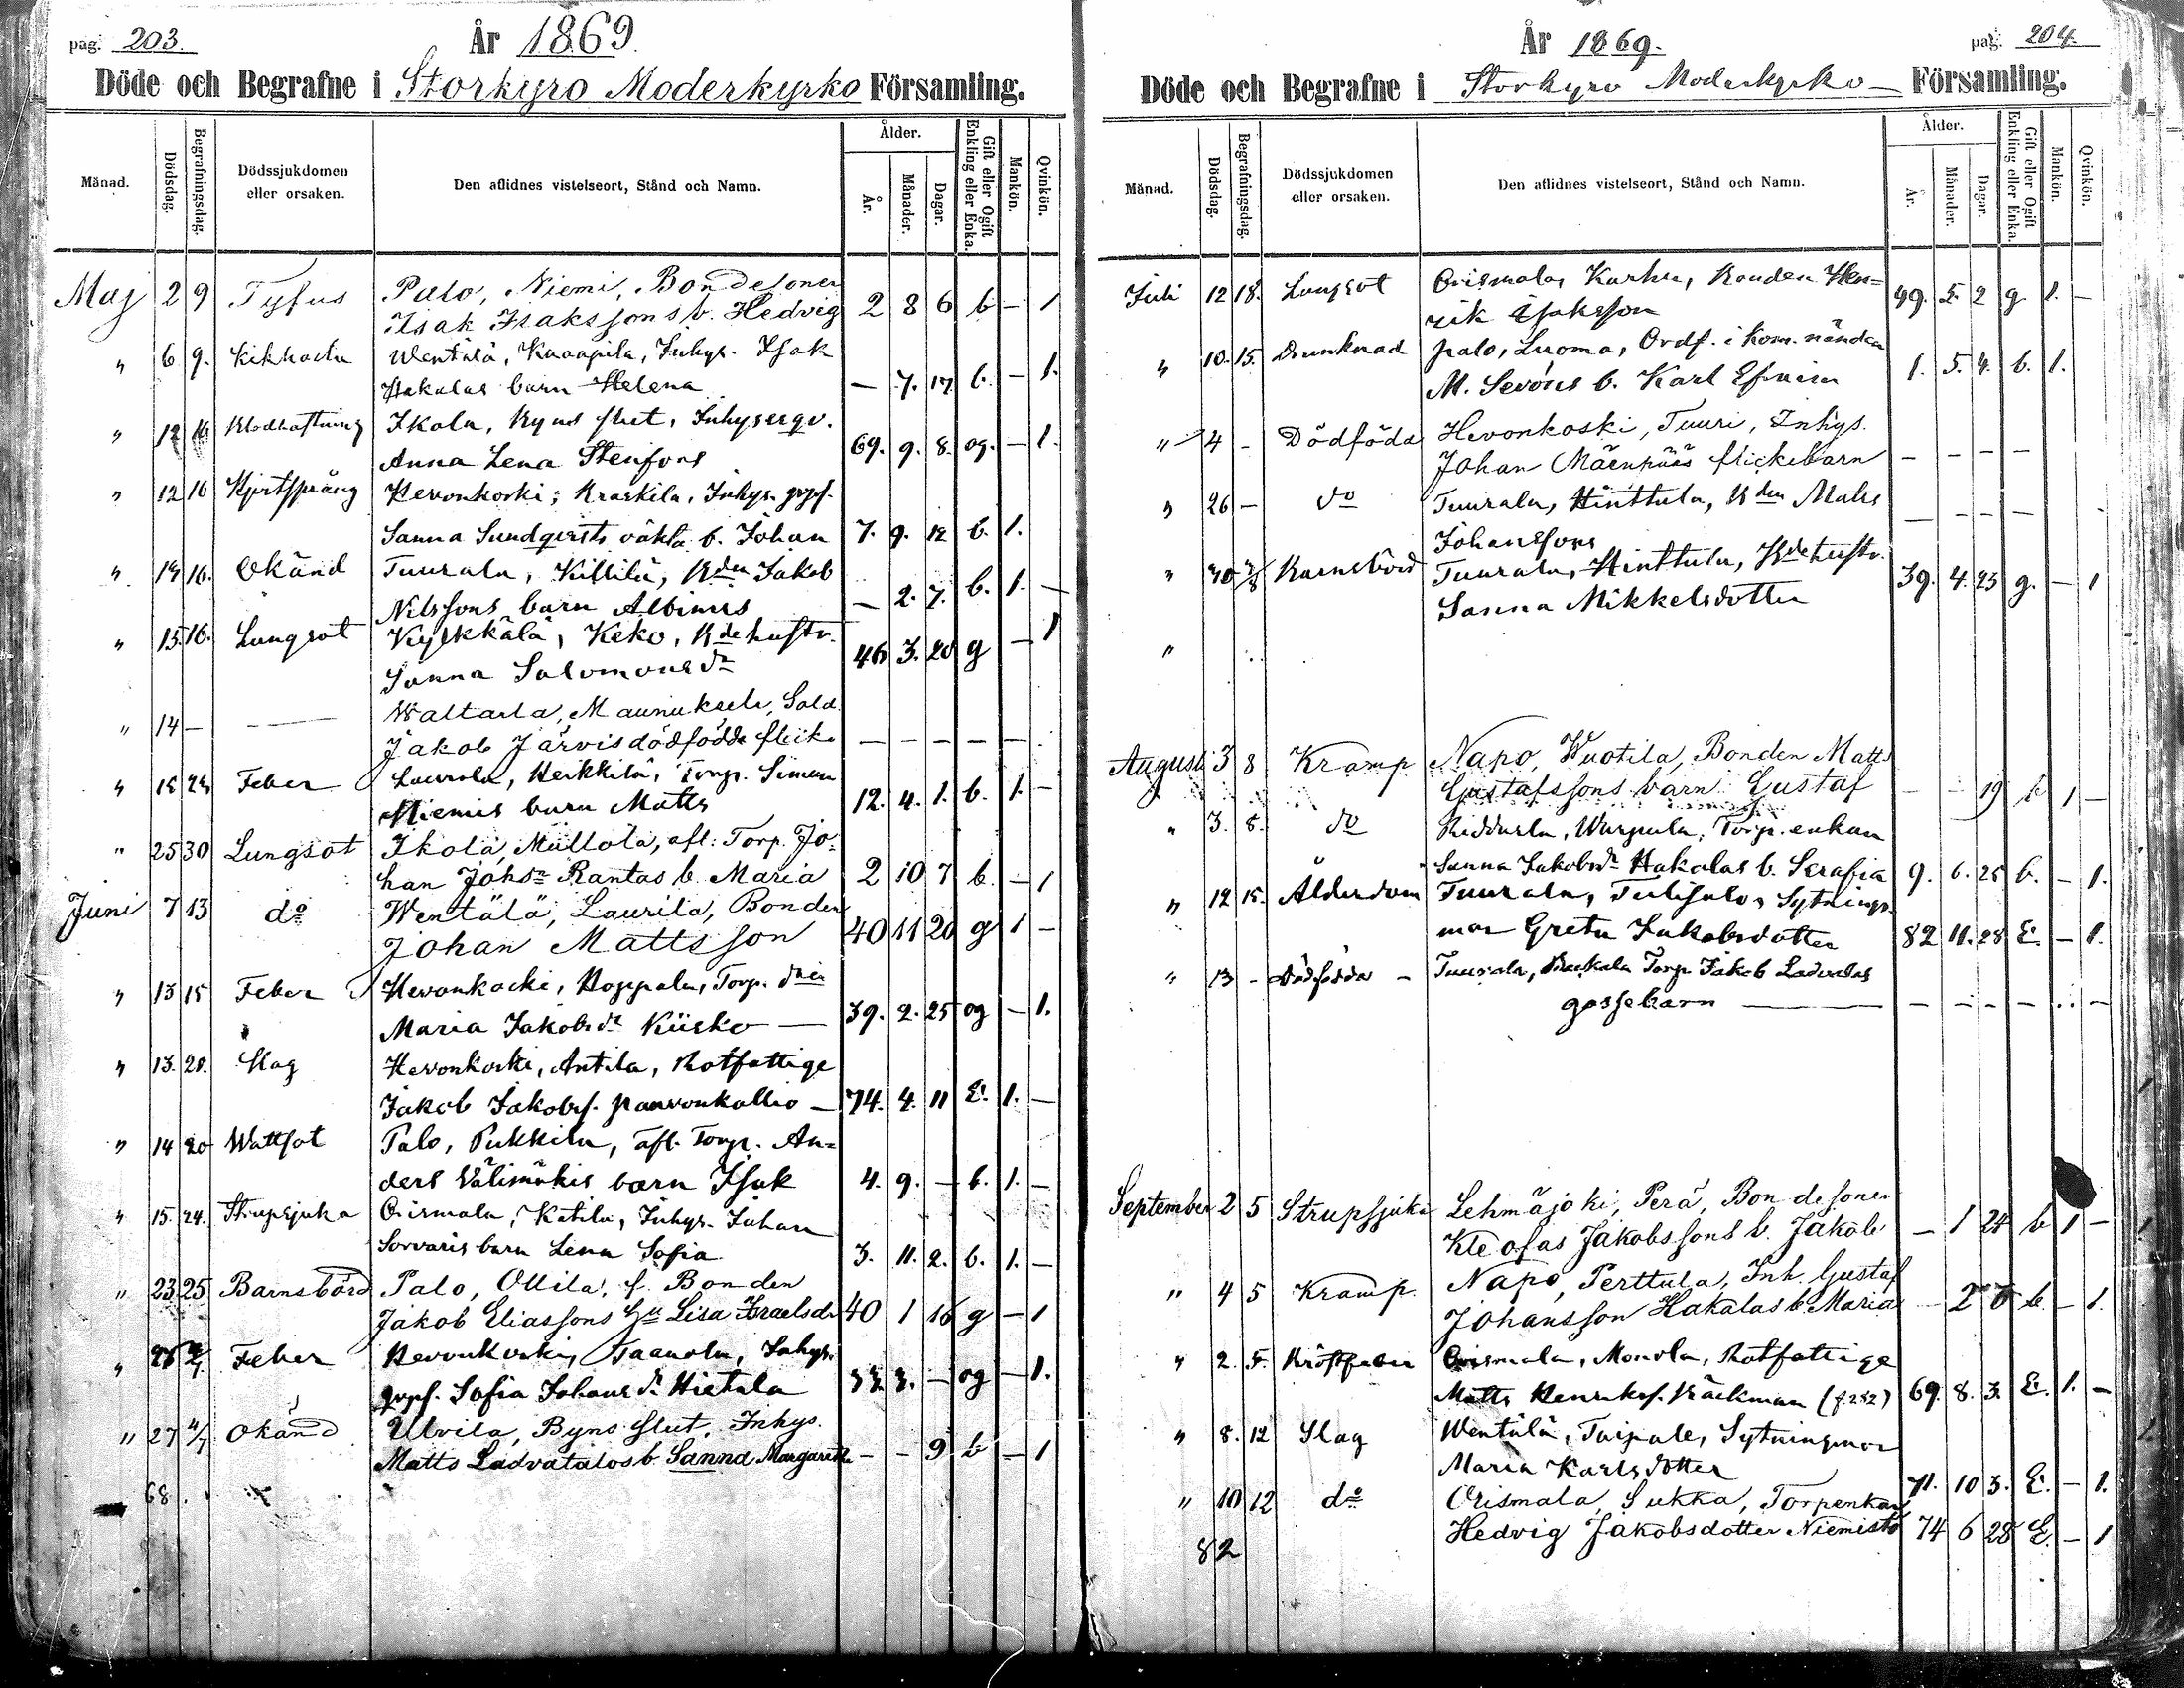 pag. 203.
År 1869.
Döde och Begrafne i Storkyro Moderkyrko Församling.
Månad. Dödsdag. Begrafningsdag. Dödssjukdomen eller orsaken. Den aflidnes vistelseort, Stånd och Namn. Ålder. År. Månader. Dagar. Gift eller Ogift Enkling eller Enka. Mankön. Qvinkön.
Maj 2 9 Tyfus Palo, Niemi, Bondesonen
Isak Isakssons b. Hedvig 2 8 6 b – 1
" 6 9. Kikhosta Wentälä, Knaapila, Inhys. Isak
Hakalas barn Helena — 7. 17 b. – 1.
" 12 16 Blodhostning Ikola, Byns slut, Inhysesqv.
Anna Lena Stenfors 69. 9. 8. og. – 1.
" 12 16 Hjertsprång Hevonkoski; Kraskila, Inhys. gvpf.
Sanna Sundqvists oäkta b. Johan 7. 9. 12 b. 1.
" 14 16. Okänd Tuurala, Killilä, Bden Jakob
Nilssons barn Albinus — 2. 7. b. 1. —
" 15. 16. Lungsot Kylkkälä, Keko, Bdehustr.
Sanna Salomonsdr 46 3. 20 g – 1
" 14 — — Waltarla, Maunuksela, Sold.
Jakob Järvis dödfödda flick. — — — — —
" 15 23 Feber Laurola, Heikkilä, Torp. Simon
Niemis barn Matts 12. 4. 1. b. 1. –
" 25 30 Lungsot Ikola, Mullola, afl: Torp. Jo-
han Johsn Rantas b. Maria 2 10 7 b. – 1
Juni 7 13 do Wentälä, Laurila, Bonden
Johan Mattsson 40 11 20 g 1 –
" 13 15 Feber Hevonkoski, Hoppala, Torp. dren
Maria Jakobsdr Kiisko — 39. 2. 25 og – 1.
" 13. 20. Slag Hevonkoski, Antila, Rotfattige
Jakob Jakobss. Panvonkallio – 74. 4. 11 E. 1. —
" 14 20 Wattsot Palo, Pukkila, afl. Torp. An-
ders Välimäkis barn Isak 4. 9. – b. 1. –
" 15. 24. Strupsjuka Orismala, Katila, Inhys. Juhan
Sorvaris barn Lena Sofia 3. 11. 2. b. 1. –
" 23 25 Barnsbörd Palo, Ollila, f. Bonden
Jakob Eliassons hu Lisa Israelsdr 40 1 16 g – 1
" 26 4/7 Feber Hevonkoski, Taanola, Inhys.
gvpf. Sofia Johansdr Hietala 33. 3. – og – 1.
" 27 4/7 Okänd Ulvila, Byns slut, Inhys.
Matts Ladvatalos b. Sanna Margareth – – 9 b – 1
68.
pag. 204.
År 1869.
Döde och Begrafne i Storkyro Moderkyrko – Församling.
Månad. Dödsdag. Begrafningsdag. Dödssjukdomen eller orsaken. Den aflidnes vistelseort, Stånd och Namn. Ålder. År. Månader. Dagar. Gift eller Ogift Enkling eller Enka. Mankön. Qvinkön.
Juli 12 18. Lungsot Orismala, Karhu, Bonden Hen-
rik Isaksson 49. 5. 2 g 1. –
" 10. 15. Drunknad Palo, Luoma, Ordf. i kom. nämnden
M. Sevóns b. Karl Efraim 1. 5. 4. b. 1.
" 4 – Dödföda Hevonkoski, Tuuri, Inhys.
Johan Mäenpääs flickebarn – – – –
" 26 – do Tuurala, Hinttula, Bden Matts
Johanssons — — – –
" 30 3/8 Barnsbörd Tuurala, Hinttula, Bdehustr.
Sanna Mikkelsdotter 39. 4. 23 g. – 1
"
Augusti 3 8 Kramp Napo, Wuotila, Bonden Matts
Gustafssons barn Gustaf – – 19 b 1 –
" 3. 8. do Kiddarla, Wurpula, Torp. enkan
Sanna Jakobsdr Hakalas b. Serafia 9. 6. 25 b. – 1.
" 12 15. Ålderdom Tuurala, Tulisalo, Sytnings-
mor Greta Jakobsdotter 82 11. 28 E. – 1.
" 13 – Dödfödda – Tuurala, Torp. Jakob Ladvalas
gossebarn — – – – – –
September 2 5 Strupsjuka Lehmäjoki, Perä, Bondesonen
Kleofas Jakobssons b. Jakob – 1 24 b 1 –
" 4 5 Kramp. Napo, Perttula, Inh. Gustaf
Johansson Hakalas b. Maria – 2 b. – 1.
" 2. 5. Bröstfeber Orismala, Monola, Rotfattige
Matts Henrikss. Bäckman (f 252) 69. 8. 3. E. 1. –
" 8. 12 Slag Wentälä, Taipale, Sytningmor
Maria Karlsdotter 71. 10 3. E. – 1.
" 10 12 do Orismala, Sukka, Torpenkan
Hedvig Jakobsdotter Niemistö 74 6 28 E. – 1
82